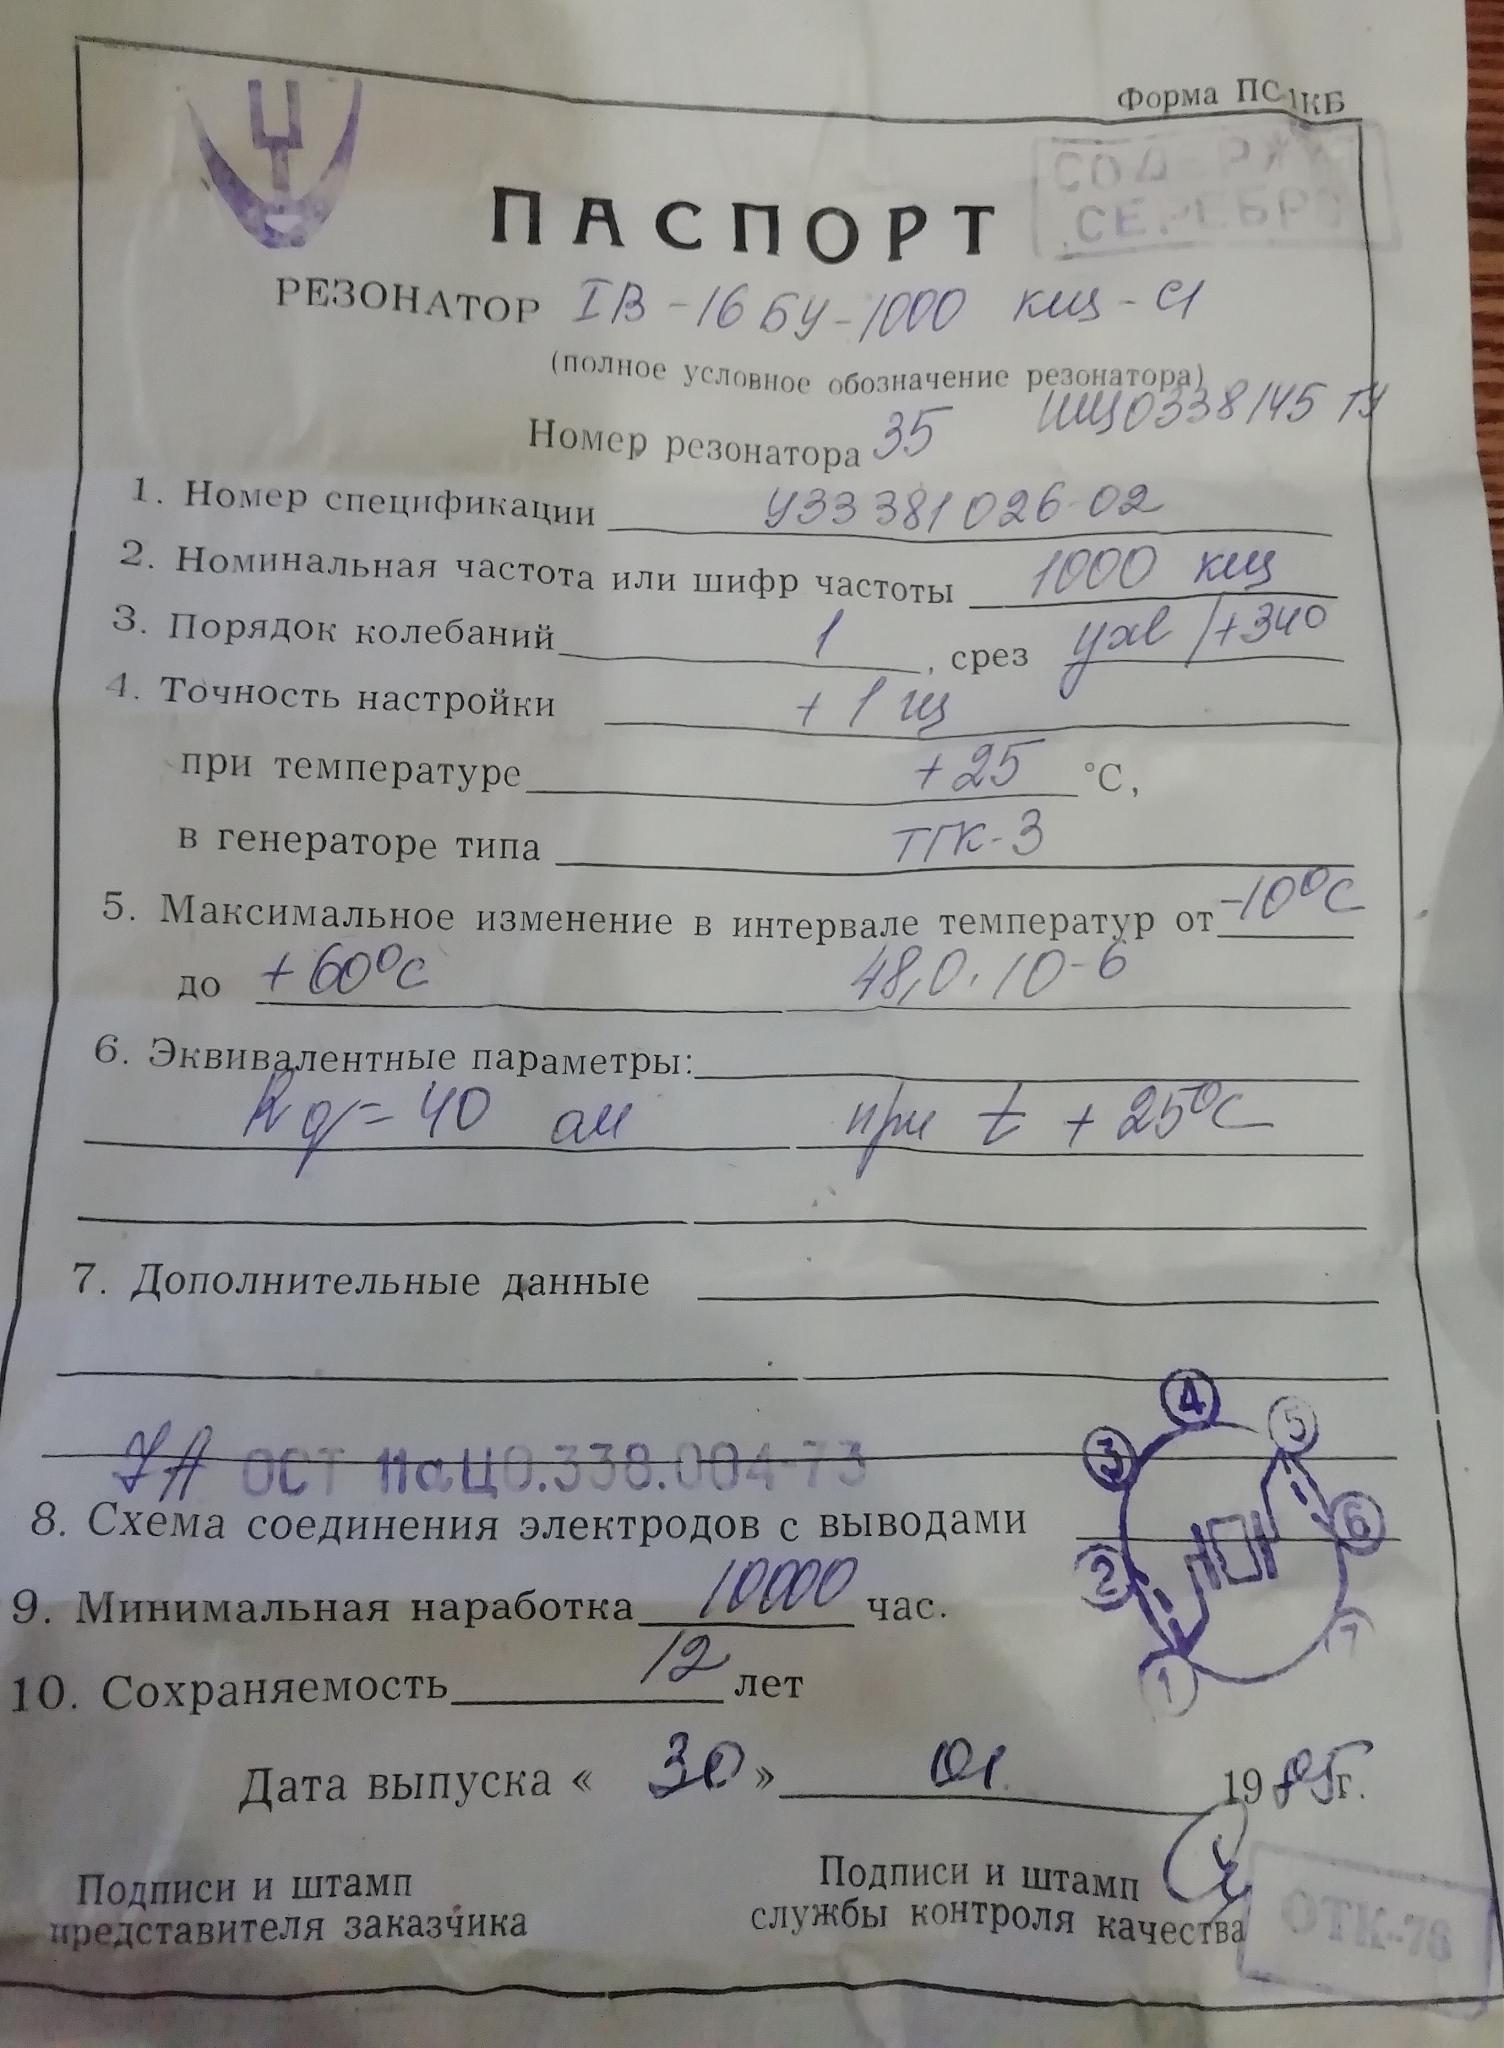 Форма ПС-1КБ
СОДЕРЖИТ
СЕРЕБРО
ПАСПОРТ
РЕЗОНАТОР IВ-16 БУ-1000 кгц - С1
(полное условное обозначение резонатора)
Номер резонатора 35 ШЦ0338145 ТУ
1. Номер спецификации У33381026-02
2. Номинальная частота или шифр частоты 1000 кгц
3. Порядок колебаний 1, срез ухl/+340
4. Точность настройки + 1 гц
при температуре +25 °С,
в генераторе типа ТГК-3
5. Максимальное изменение в интервале температур от -10°С
до +60°С 48,0·10-6
6. Эквивалентные параметры:
Rq= 40 ом при t +25°С
7. Дополнительные данные
ОСТ 11аЦ0.338.004-73
8. Схема соединения электродов с выводами
1 2 3 4 5 6 7
9. Минимальная наработка 10000 час.
10. Сохраняемость 12 лет
Дата выпуска « 30 » 01 1985г.
Подписи и штамп
представителя заказчика
Подписи и штамп
службы контроля качества
ОТК-78